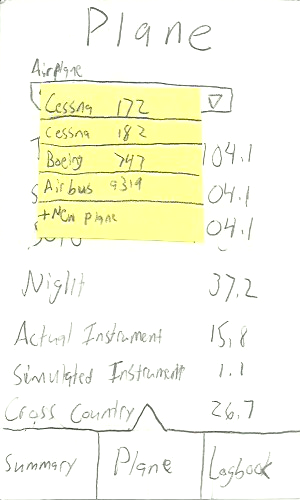 Plane
Airplane
Cessna 172
Cessna 182
Boeing 747
Airbus
+New plane
104.1
104.1
104.1
Night 37.2
Actual Instrument 15.8
Simulated Instrument 1.1
Cross Country 26.7
Summary Plane Logbook